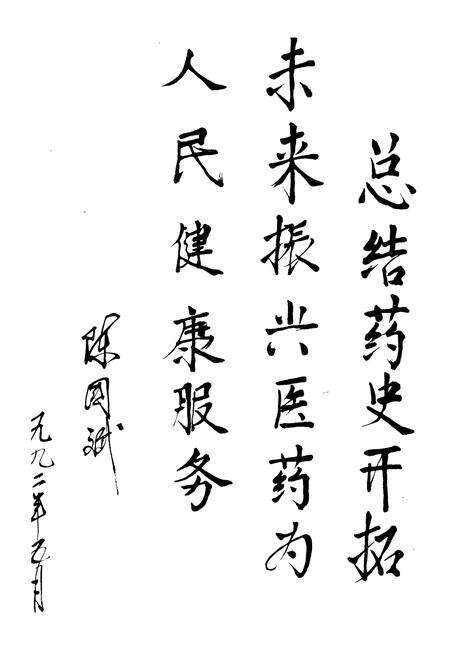 总结药史开拓
未来振兴医药为
人民健康服务
陈国斌
一九九二年五月